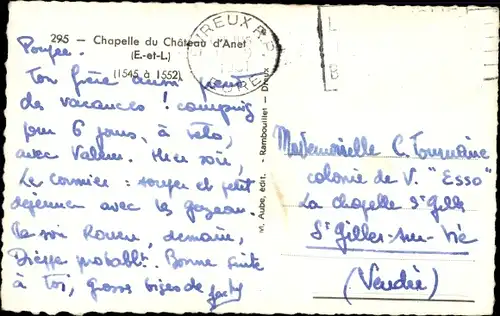 295 - Chapelle du Château d'Anet
(E.-et-L.)
(1545 à 1552)
Ton frère aussi prend
des vacances ! camping
pour 6 jours, à vélo,
avec Valem. Hier soir,
Le Cormier : souper et petit
déjeuner avec les Gazeau.
Ce soir Rouen, demain,
Dieppe probablt. Bonne suite
à Toi, grosses bises de Jacky
M. Aube, édit. - Rambouillet - Dreux
EVREUX R.P.
EURE
Mademoiselle C. Tourmaine
colonie de V. "Esso"
La chapelle St Gilles
St Gilles-sur-Vie
(Vendée)